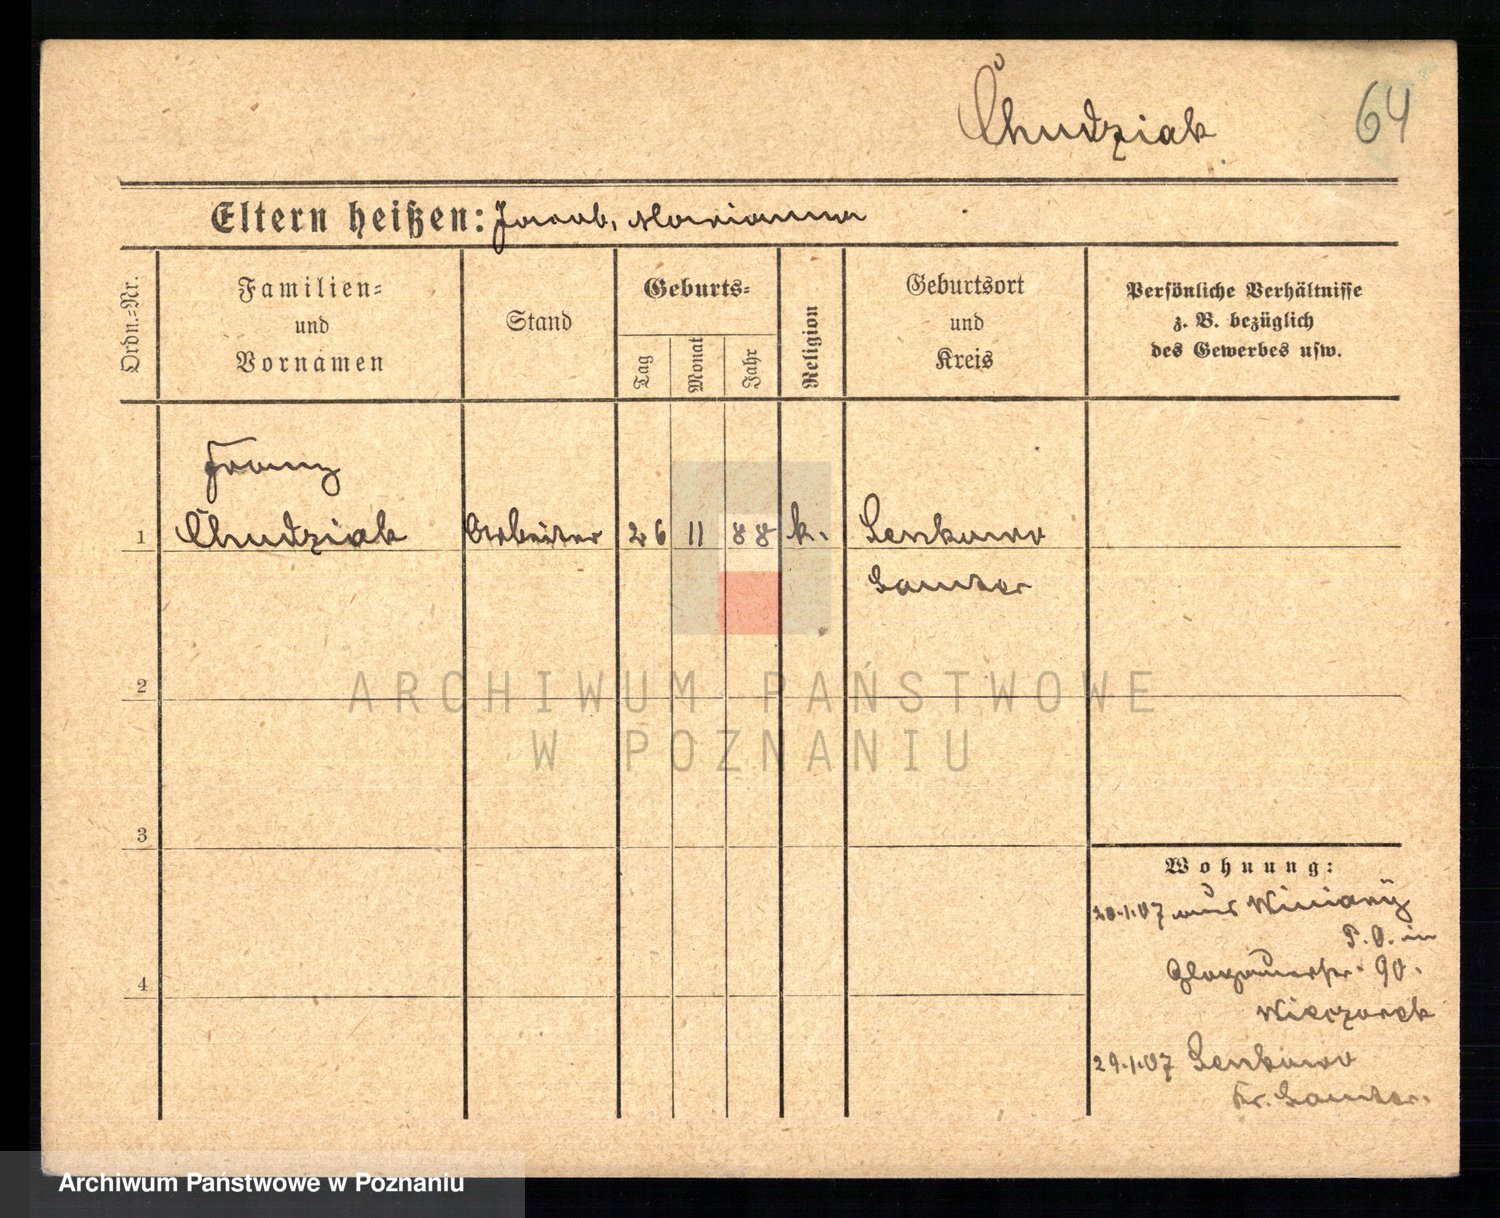 Chudziak
64
Eltern heißen: Jacob, Marianna
Ordn.-Nr.
Familien-
und
Vornamen
Stand
Geburts-
Tag
Monat
Jahr
Religion
Geburtsort
und
Kreis
Persönliche Verhältnisse
z. B. bezüglich
des Gewerbes usw.
Franz
1 Chudziak Arbeiter 26 11 88 k. Senkowo
Samter
2
ARCHIWUM PAŃSTWOWE
W POZNANIU
3
Wohnung:
20.1.07 aus Winiary
P. O. in
90.
Wieczorek
4
29.1.07 Senkowo
Kr. Samter.
Archiwum Państwowe w Poznaniu